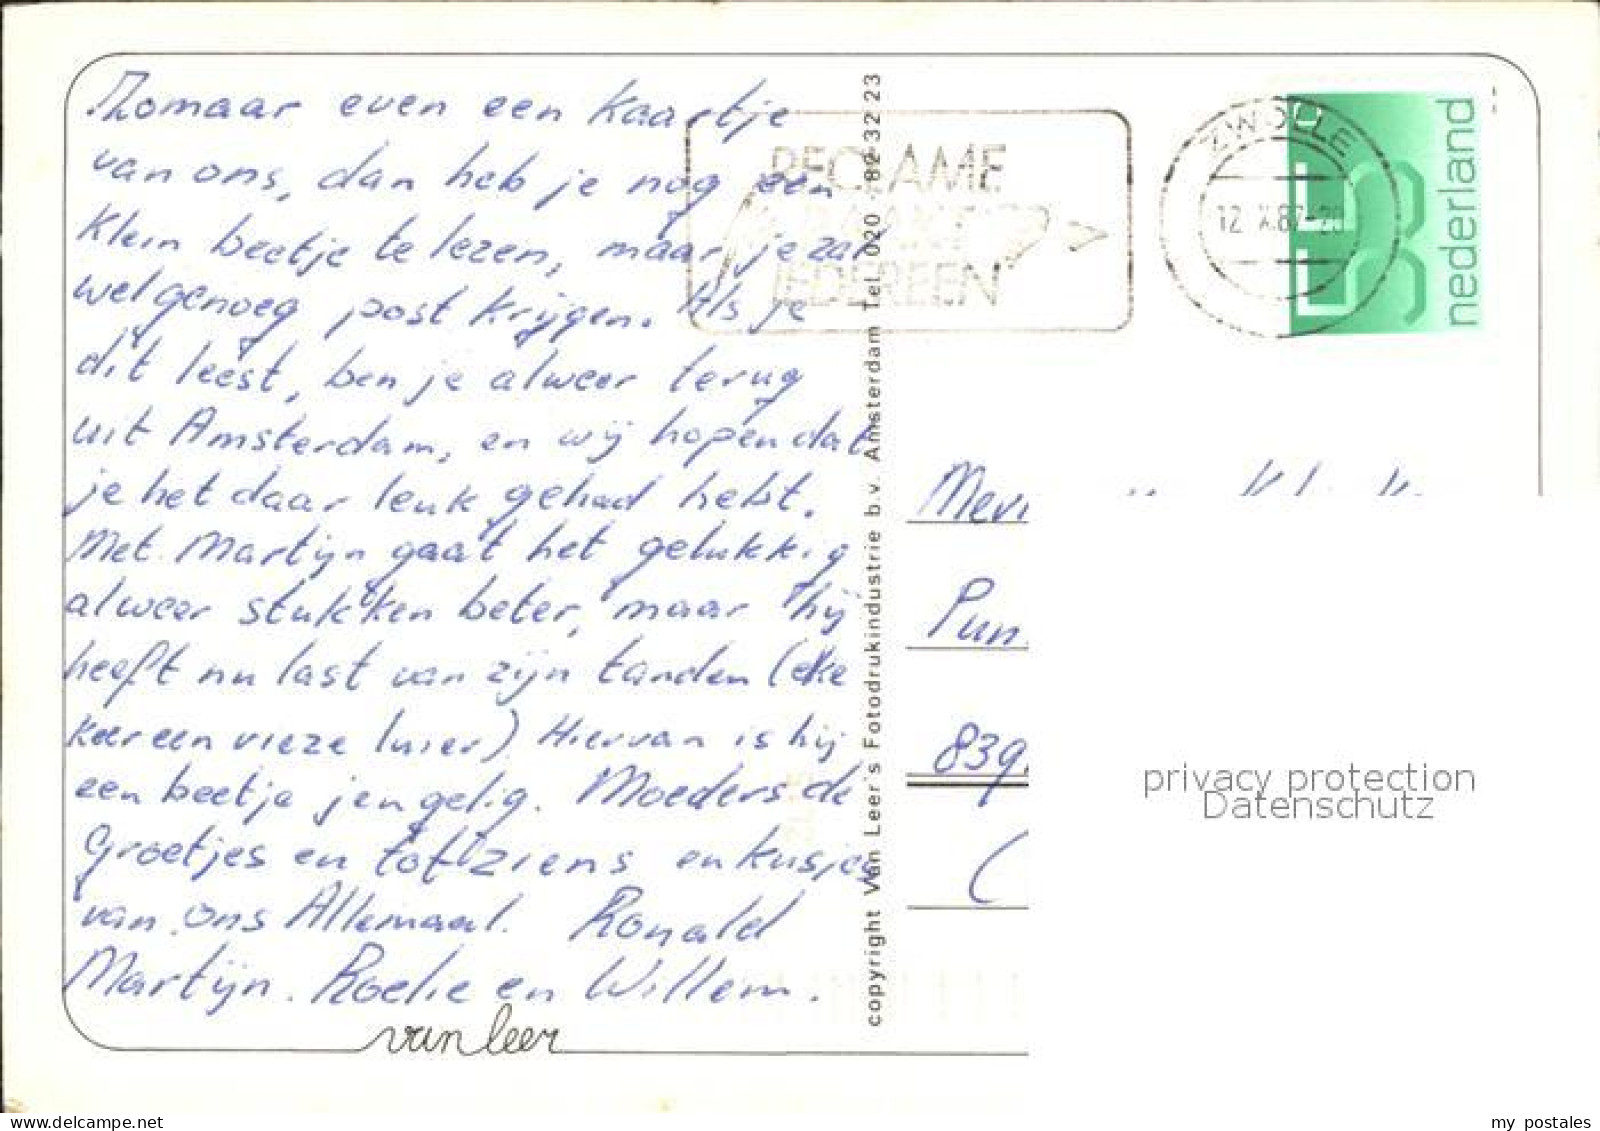 Zomaar even een kaartje
van ons, dan heb je nog een
klein beetje te lezen, maar je zal
wel genoeg post krijgen. Als je
dit leest, ben je alweer terug
uit Amsterdam, en wij hopen dat
je het daar leuk gehad hebt.
Met Martijn gaat het gelukkig
alweer stukken beter, maar hij
heeft nu last van zijn tanden (elke
keer een vieze luier) Hiervan is hij
een beetje jengelig. Moeders de
Groetjes en tot ziens en kusjes
van ons Allemaal. Ronald
Martijn. Roelie en Willem.
van leer
copyright Van Leer's Fotodrukindustrie b.v. Amsterdam Tel. 020 - 82 32 23
RECLAME
IEDEREEN
ZWOLLE
12 X.87-20
55
nederland
Mevr
Pun
839
(
privacy protection
Datenschutz
my postales